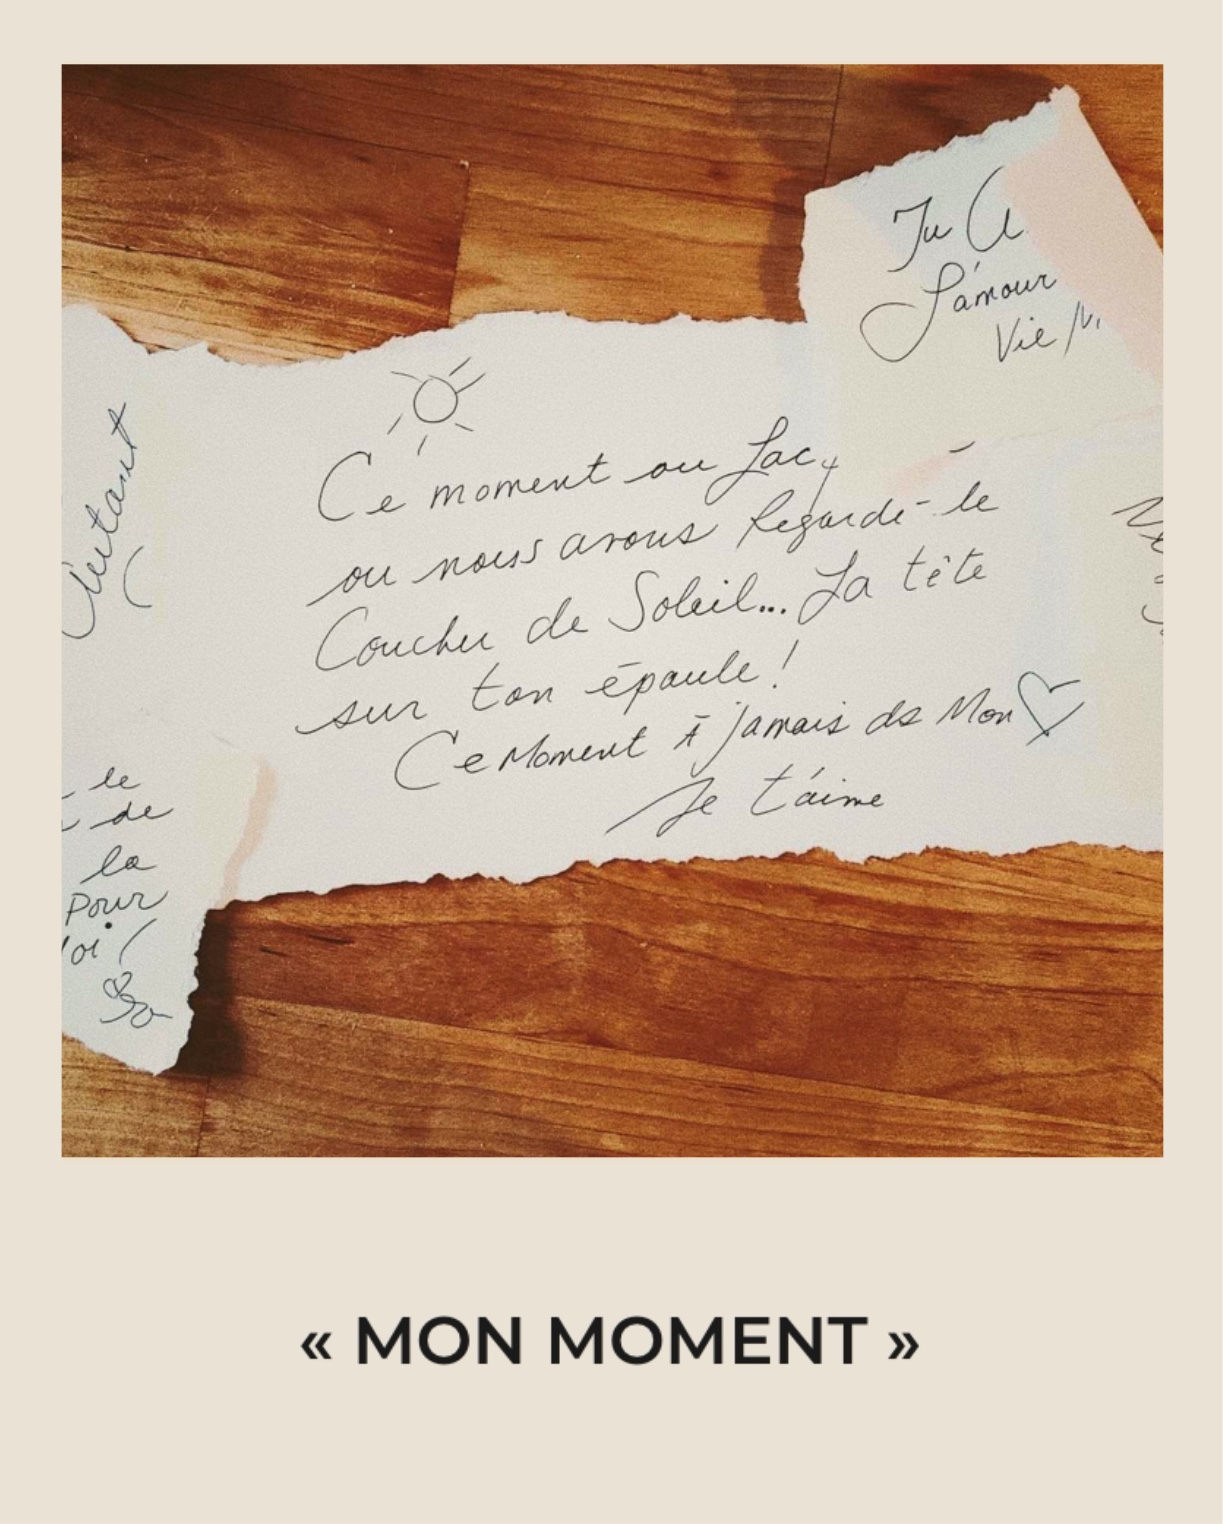 Tu
L'amour
Vie
Ce moment ou Lac,
ou nous avons Regardé le
Coucher de Soleil... La tête
sur ton épaule!
Ce Moment À jamais ds Mon
Je t'aime
Autant
le
de
la
Pour
« MON MOMENT »